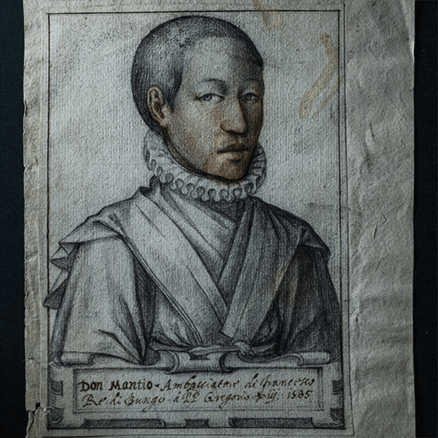 Don Mantio · Ambasciatore di Francesco
Re di Bungo à PP. Gregorio xiij. 1585